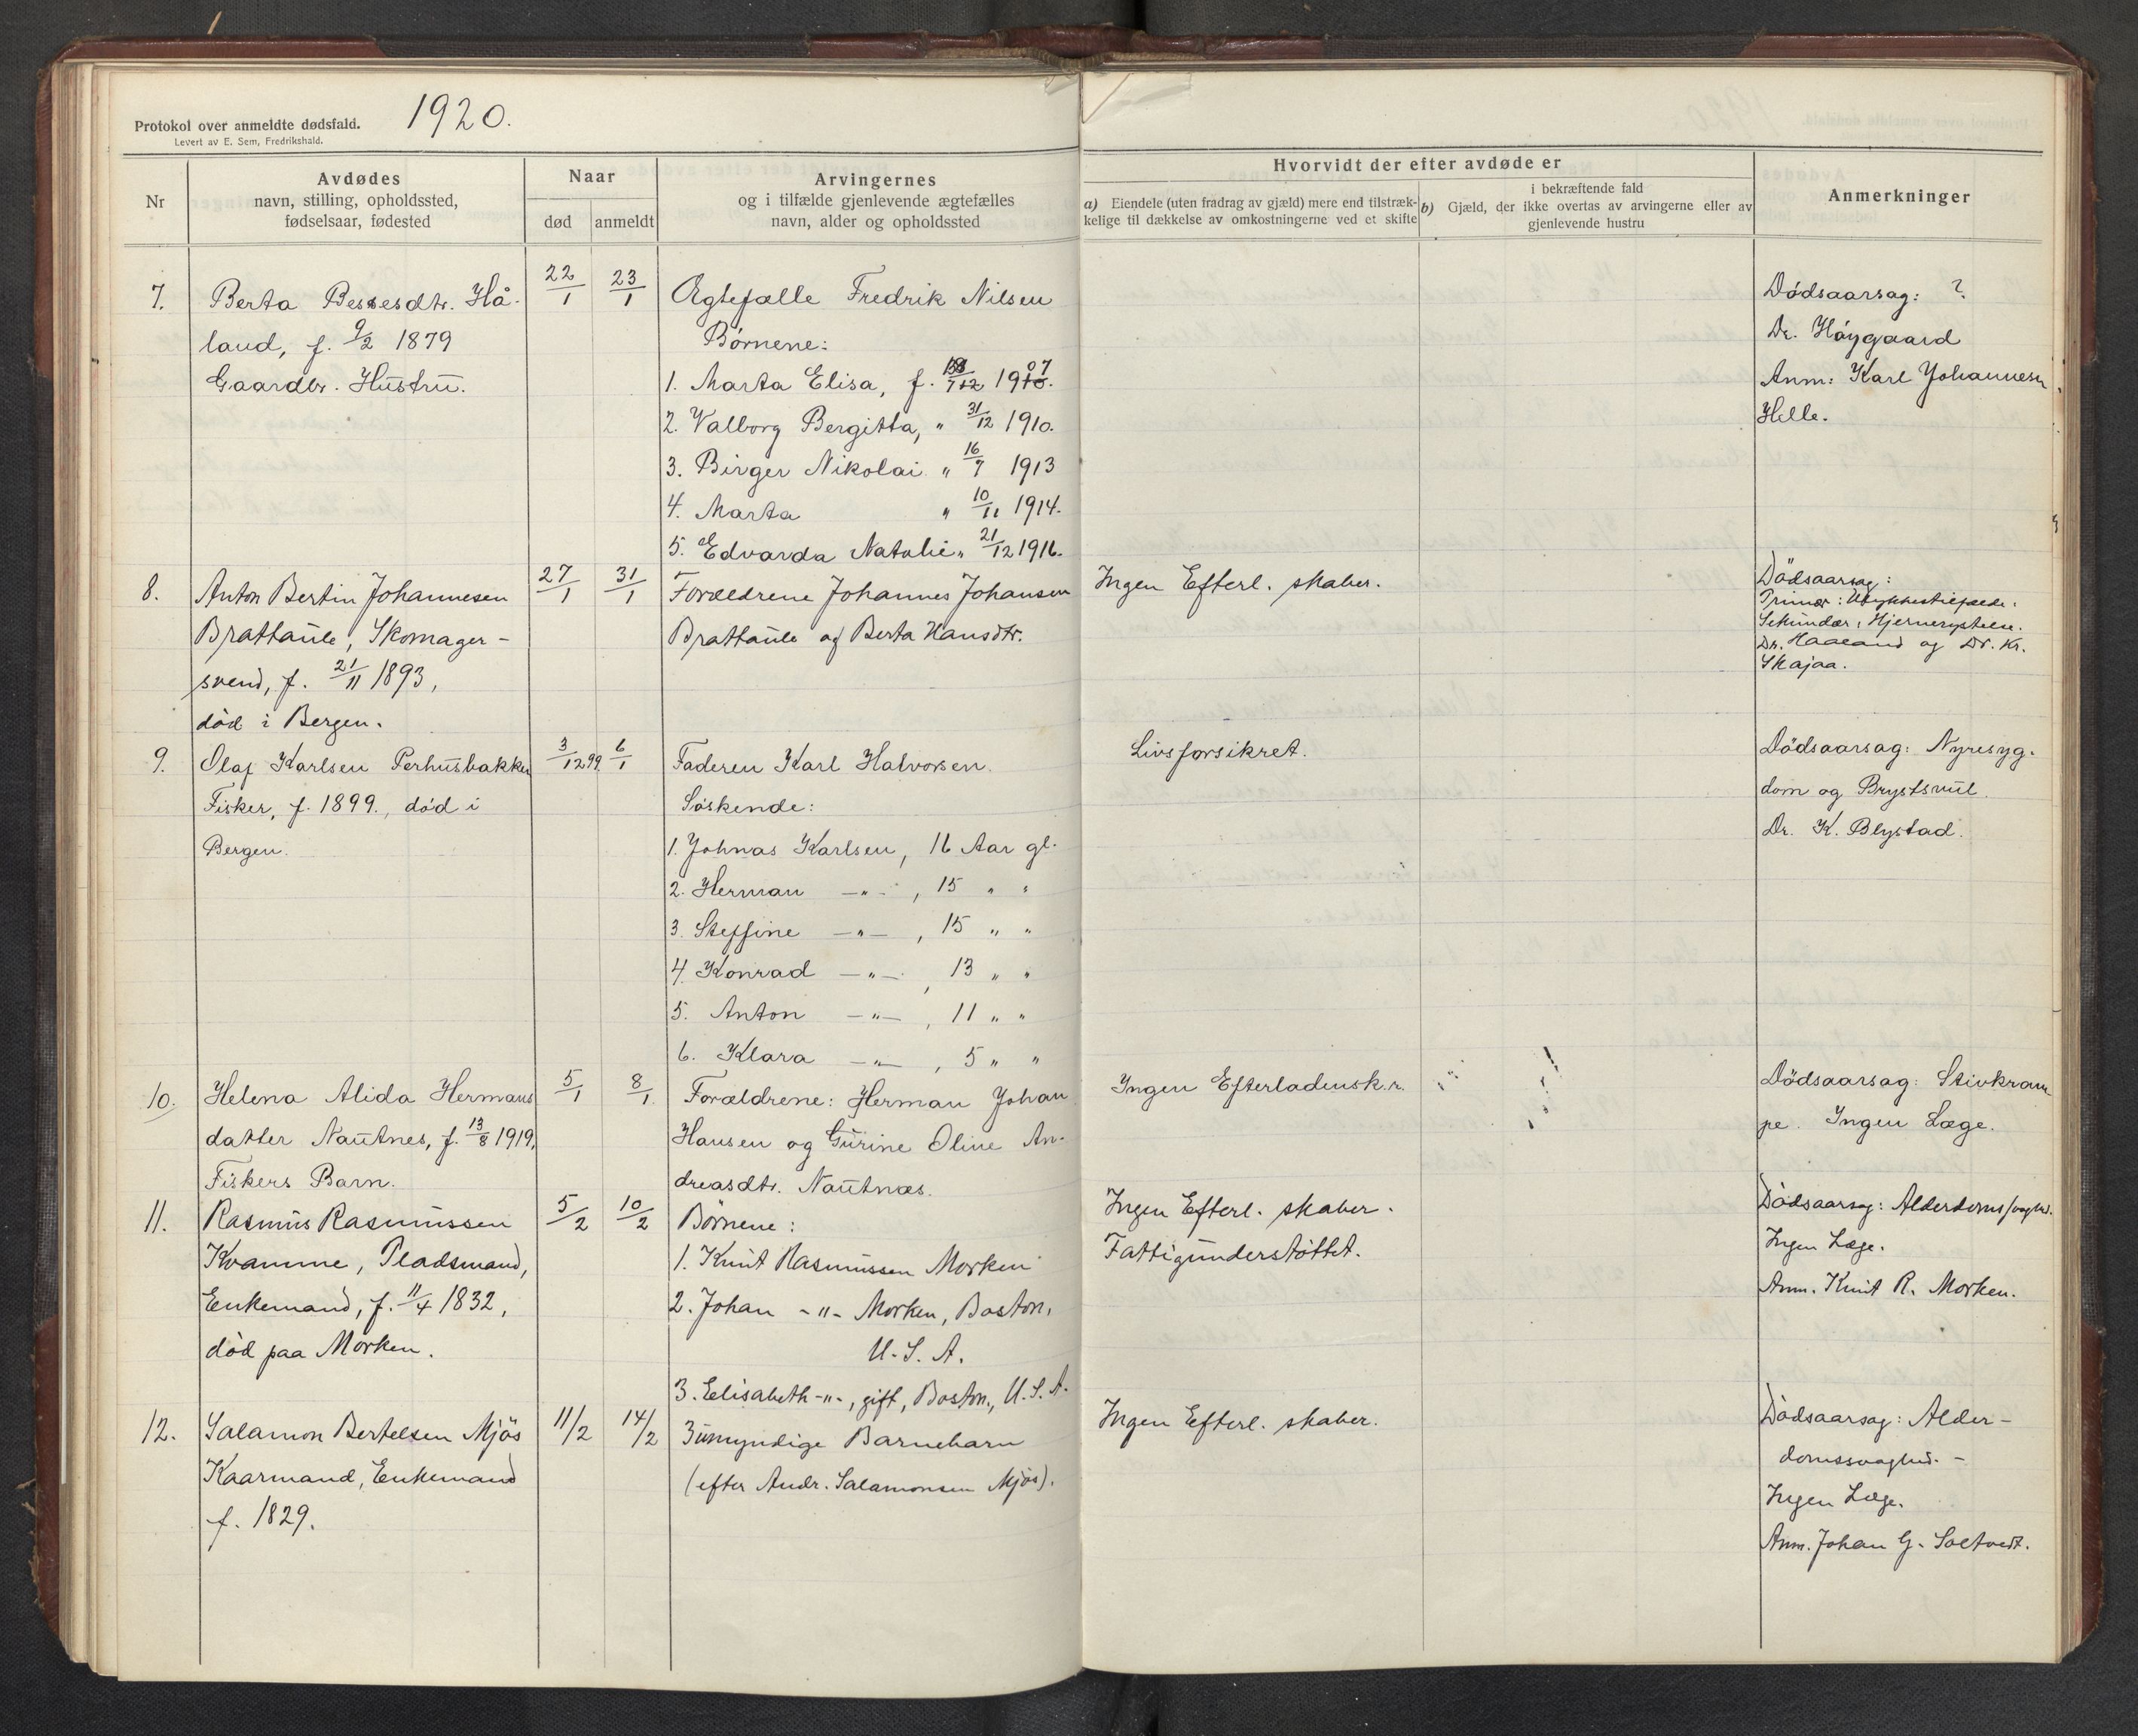 Protokol over anmeldte dødsfald. 1920.
Levert av E. Sem, Fredrikshald.
Nr
Avdødes
navn, stilling, opholdssted,
fødselsaar, fødested
Naar
død
anmeldt
Arvingernes
og i tilfælde gjenlevende ægtefælles
navn, alder og opholdssted
Hvorvidt der efter avdøde er
a) Eiendele (uten fradrag av gjæld) mere end tilstræk-
kelige til dækkelse av omkostningerne ved et skifte
i bekræftende fald
b) Gjæld, der ikke overtas av arvingerne eller av
gjenlevende hustru
Anmerkninger
7.
Berta Bessesdtr. Hå-
land, f. 9/2 1879
Gaardbr. Hustru.
22/1
23/1
Ægtefælle Fredrik Nilsen
Børnene:
1. Marta Elisa, f. 1907.
2. Valborg Bergitta, " 31/12 1910.
3. Birger Nikolai " 16/7 1913
4. Marta " 10/11 1914.
5. Edvarda Natalie " 21/12 1916.
Dødsaarsag: ?
Dr. Høygaard
Anm: Karl Johannesen
Helle.
8.
Anton Bertin Johannesen
Brattaule, Skomager-
svend, f. 21/11 1893,
død i Bergen.
27/1
31/1
Forældrene Johannes Johansen
Brattaule og Berta Hansdtr.
Ingen Efterl. skaber.
Dödsaarsag:
Primær: Ulykkestilfælde.
Sekundær: Hjernerystelse.
Dr. Haaland og Dr. Kr.
Skajaa.
9.
Olaf Karlsen Perhusbakken
Fisker, f. 1899., død i
Bergen.
3/12 99.
6/1
Faderen Karl Halvorsen.
Søskende:
1. Johnas Karlsen, 16 Aar gl.
2. Herman —"— , 15 " "
3. Steffine —"— , 15 " "
4. Konrad —"— , 13 " "
5. Anton —"— , 11 " "
6. Klara —"— , 5 " "
Livsforsikret.
Dødsaarsag: Nyresyg-
dom og Brystsvul.
Dr. K. Blystad.
10.
Helena Alida Hermans
datter Nautnes, f. 13/8 1919,
Fiskers Barn.
5/1
8/1.
Forældrene: Herman Johan
Hansen og Gurine Oline An-
dreasdtr. Nautnæs.
Ingen Efterladensk.r.
Dødsaarsag: Stivkram-
pe. Ingen Læge.
11.
Rasmus Rasmussen
Kvamme, Pladsmand,
Enkemand, f. 11/4 1832,
død paa Morken.
5/2
10/2
Børnene:
1. Knut Rasmussen Morken
2. Johan -"- Morken, Boston,
U. S. A.
3. Elisabeth -"-, gift, Boston, U. S. A.
Ingen Efterl. skaber.
Fattigunderstøttet.
Dödsaarsag: Alderdoms
Ingen Læge.
Anm. Knut R. Morken.
12.
Salamon Bertelsen Mjös
Kaarmand, Enkemand
f. 1829.
11/2
14/2
3 umyndige Barnebarn
(efter Andr. Salamonsen Mjös).
Ingen Efterl. skaber.
Dødsaarsag: Alder-
domssvaghed. -
Ingen Læge.
Anm. Johan G. Soltvedt.